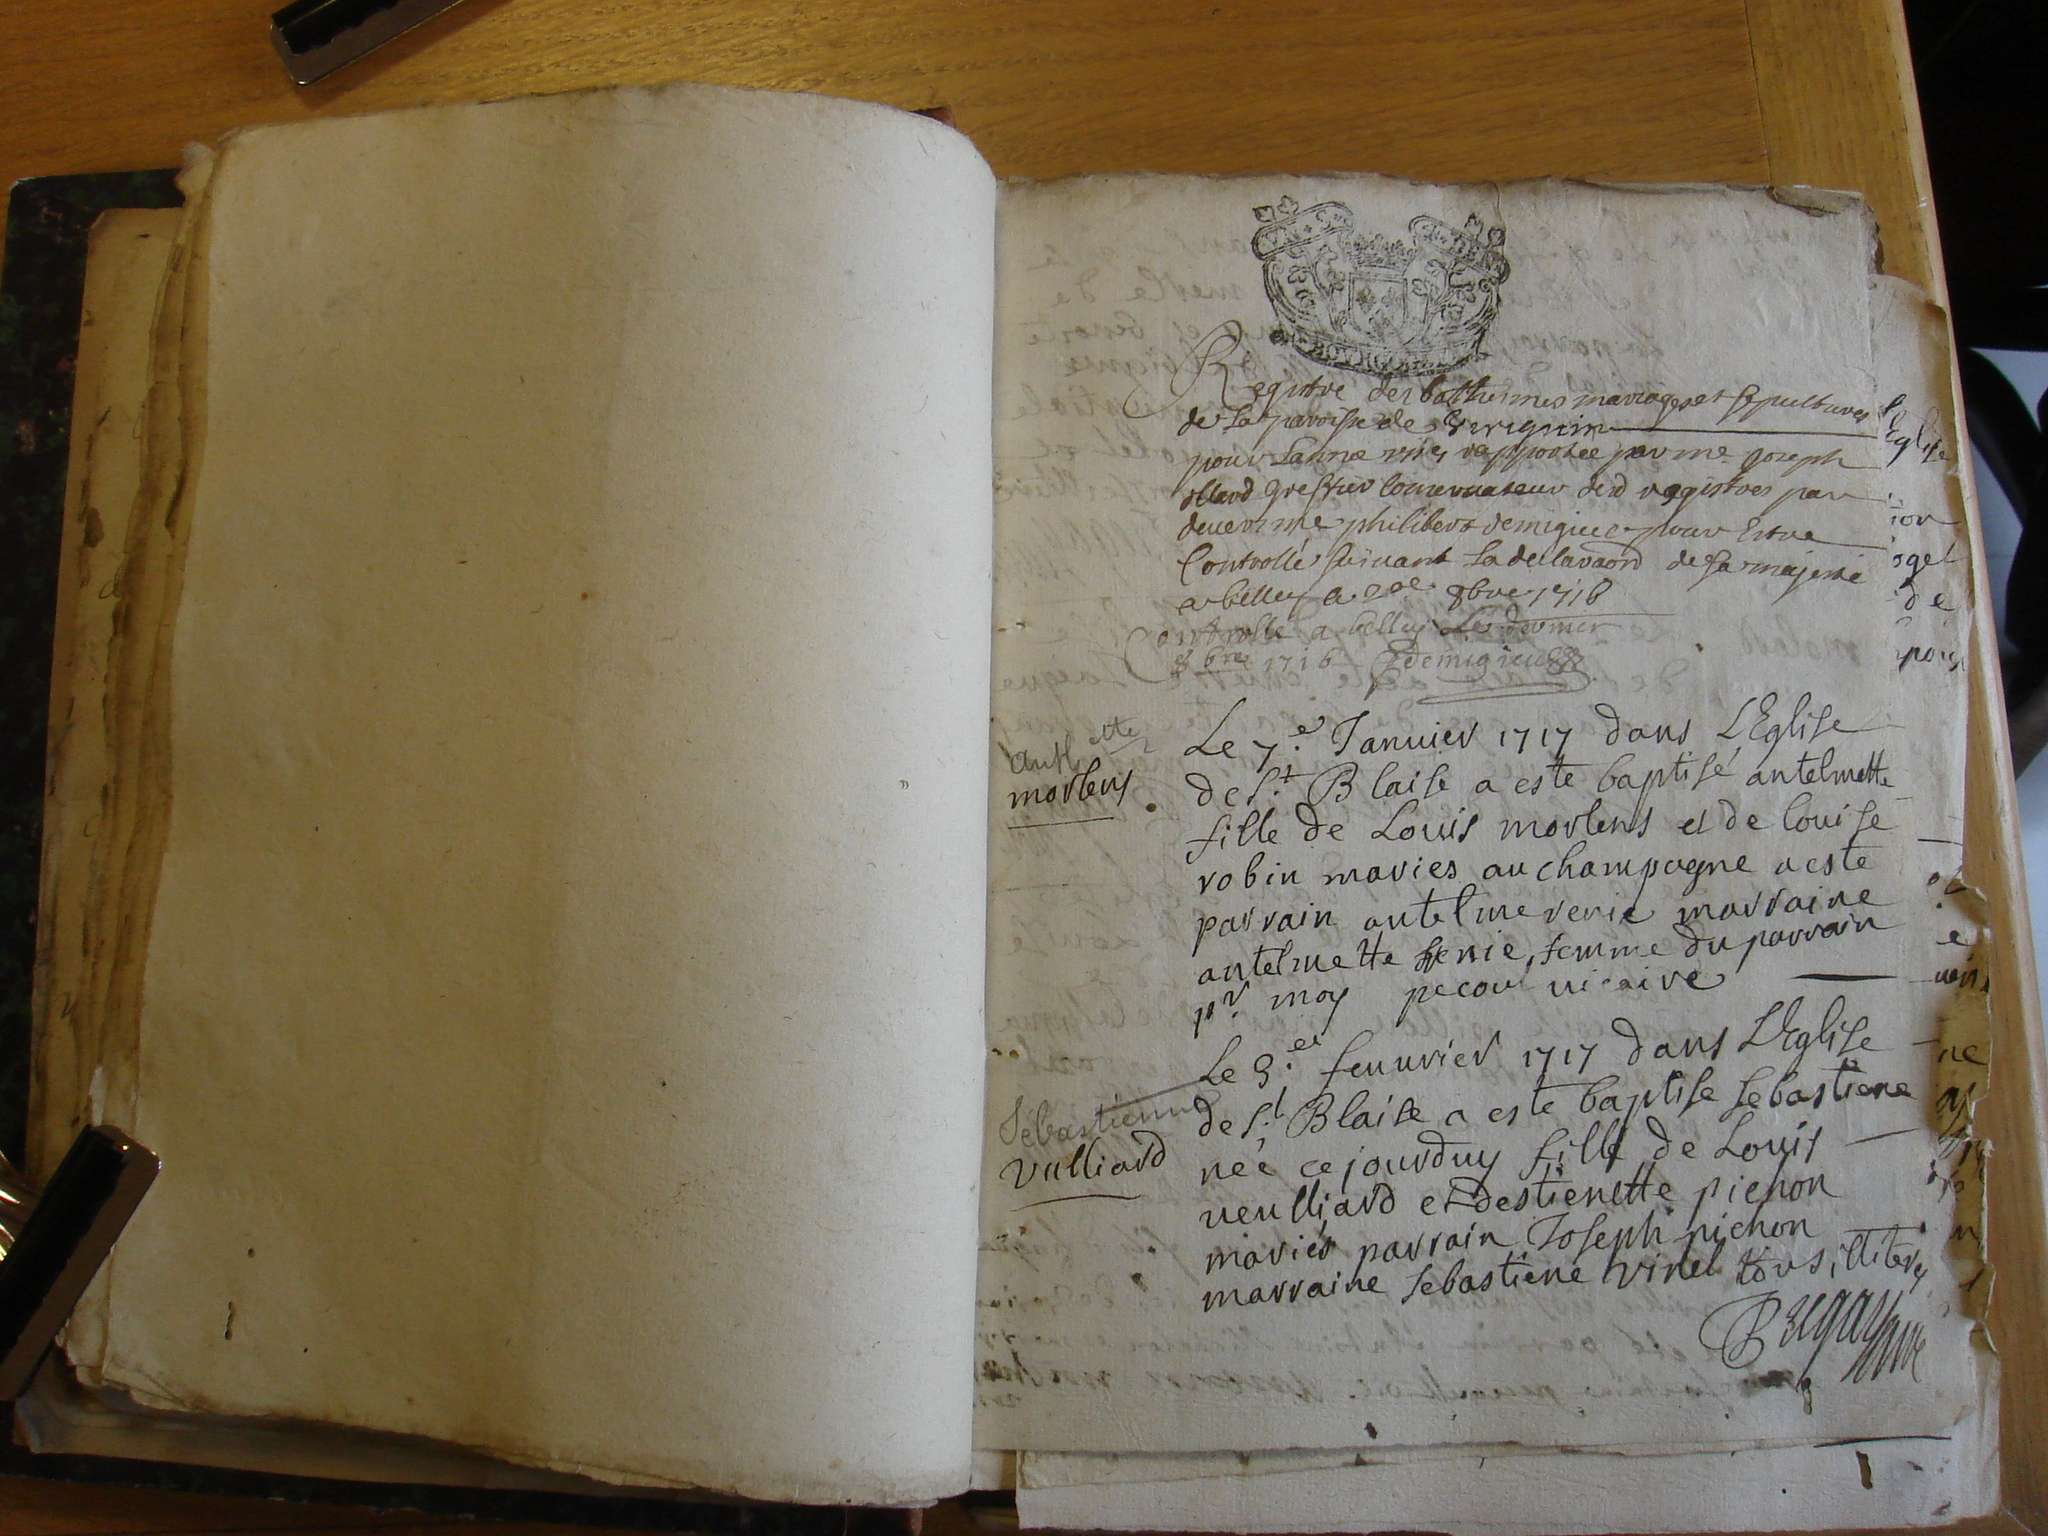 Registre des battesmes mariages et sepultures
de la paroisse de
pour lannee 1717 rapportee par me Joseph
greffier conservateur desd registres par
devers me philibert demigieu pour Estre
Controllé suivant la declaraon de sa majesté
a belley a 8bre 1716
Controllé a belley Le dernier
8bre 1716 demigieu
anthelmette
morlens
Le 7.e Janvier 1717 dans L'Eglise
de St. Blaise a este baptisé antelmette
fille de Louis morlens et de Louise
robin maries au champagne a este
parrain antelme renie marraine
antelmette renie femme du parrain
pr. moy pecoul vicaire
Sébastienne
vulliard
Le 3.e feuvrier 1717 dans L'Eglise
de St. Blaise a este baptise Sebastiene
née ce jourduy fille de Louis
veulliard et destienette pichon
mariés parrain Joseph pichon
marraine Sebastiene vinel tous illiterés
Eglise